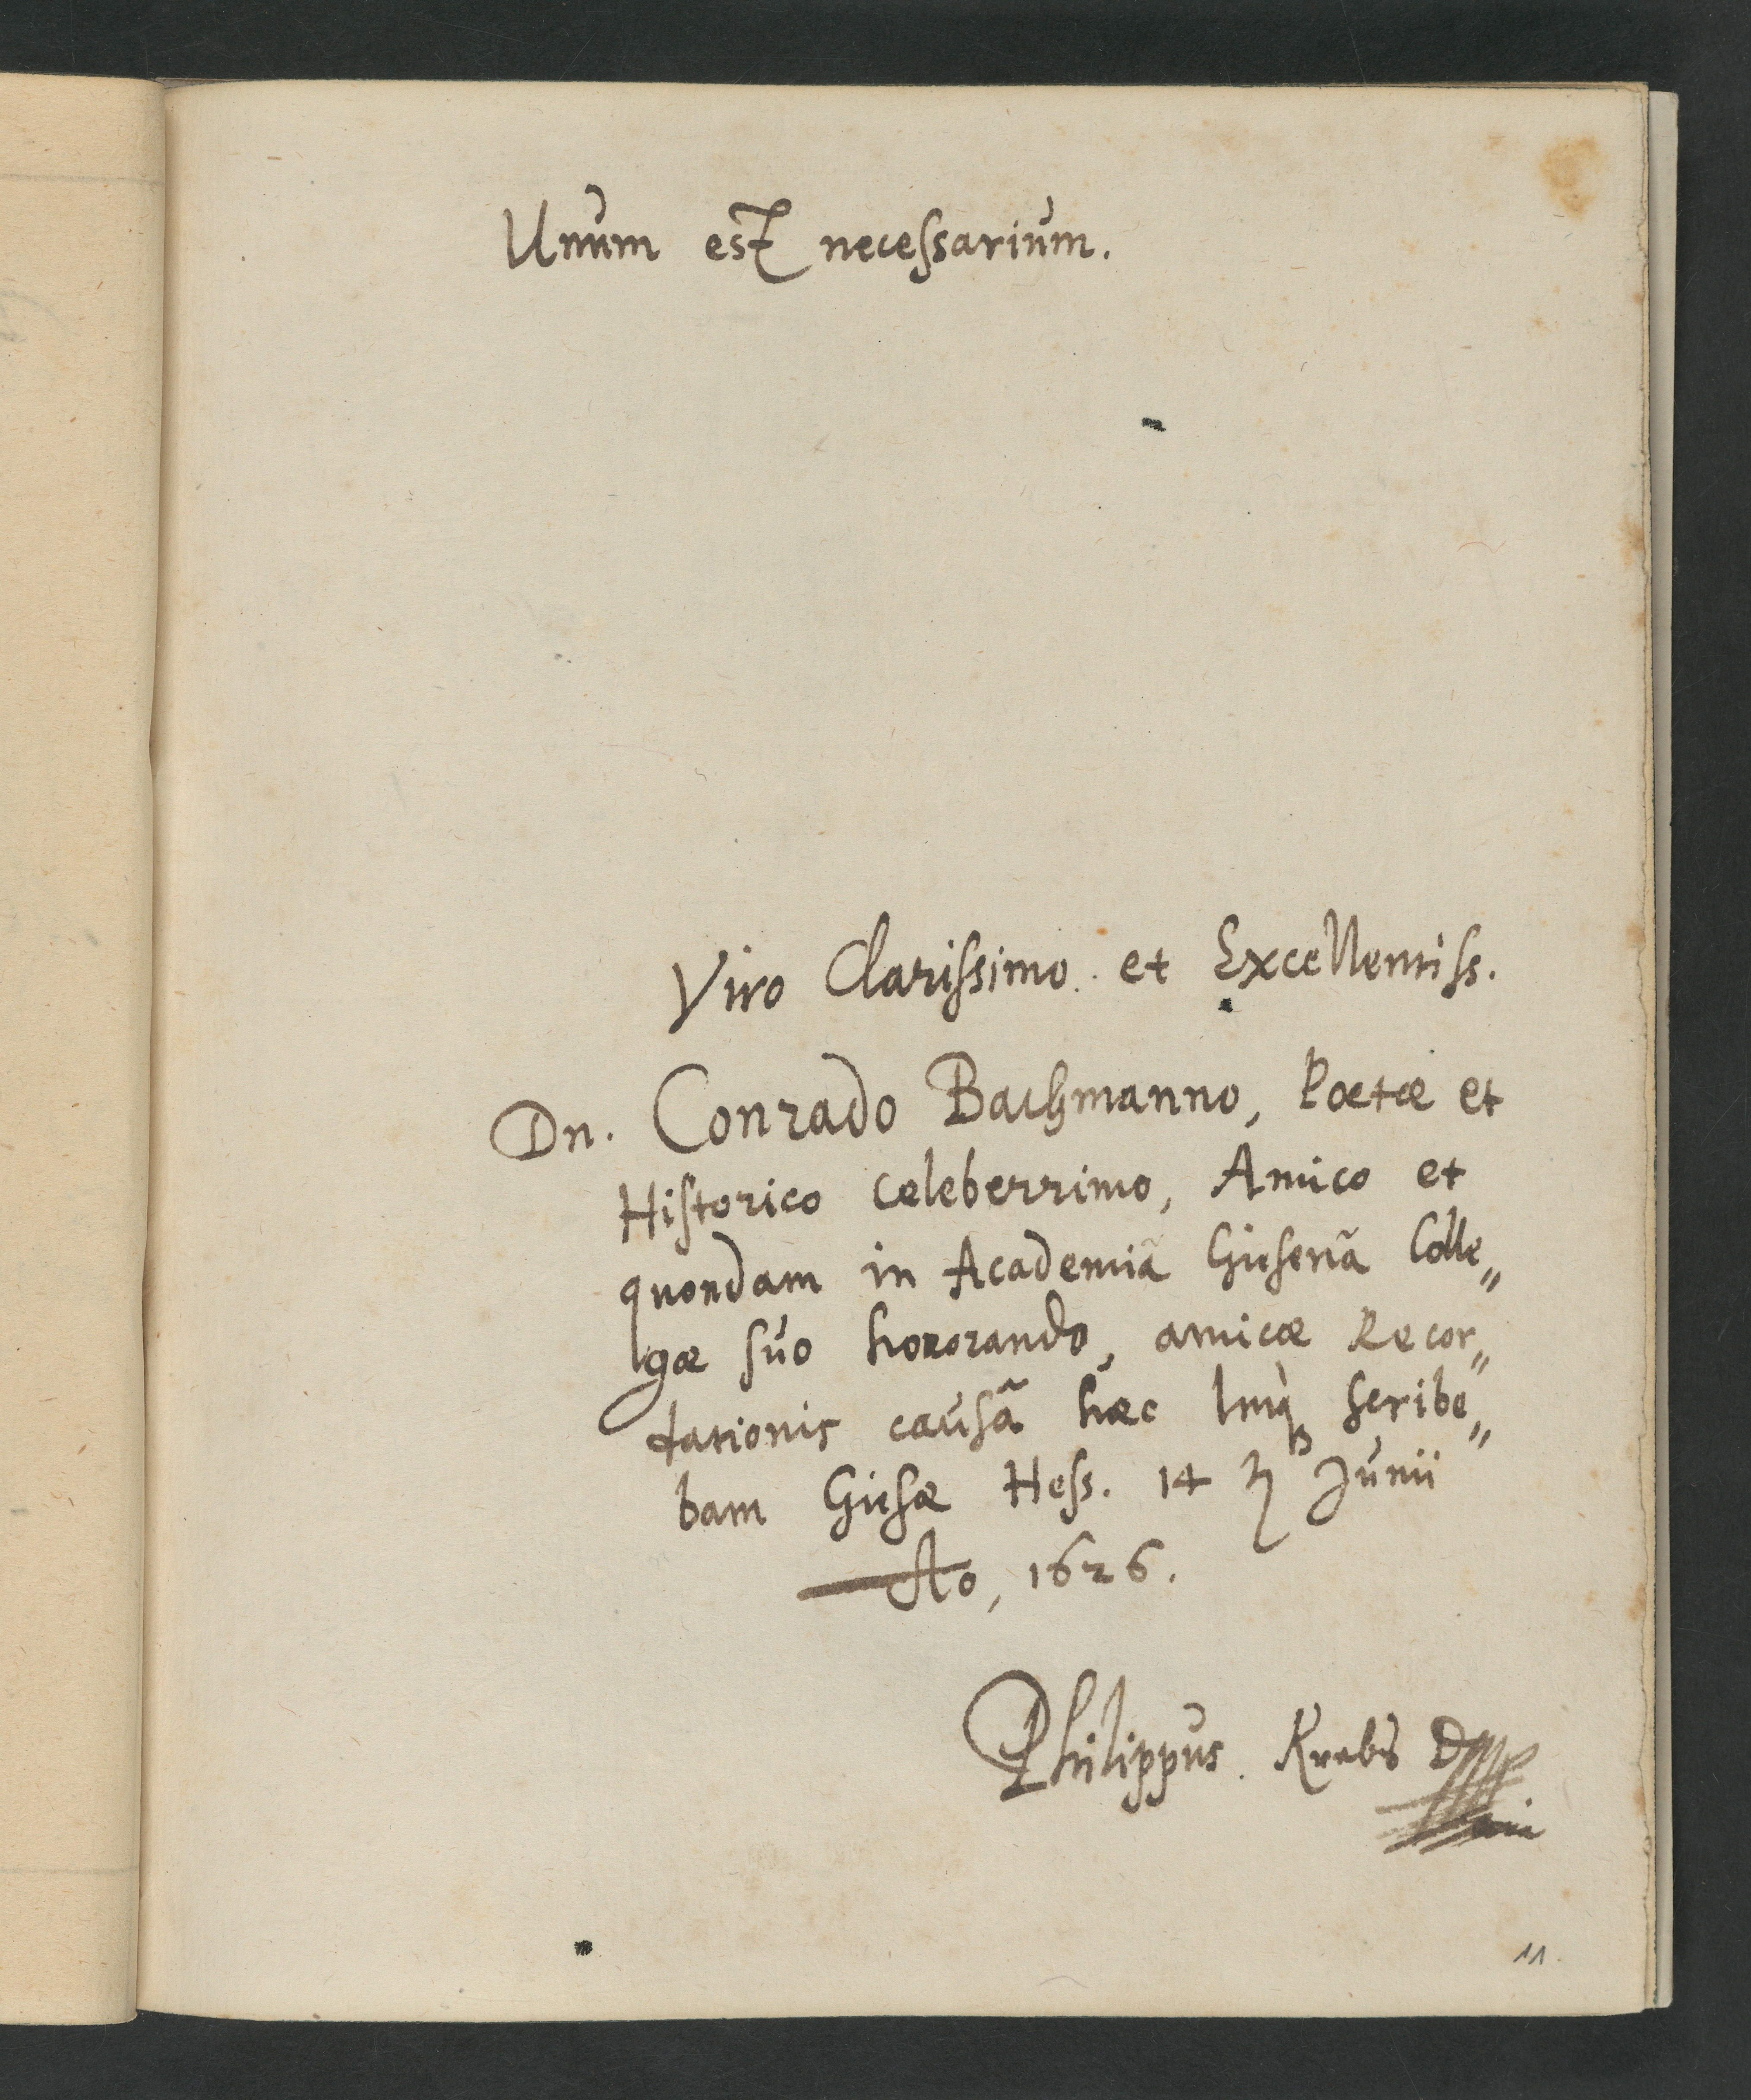 Unum est necessarium.
Viro Clarissimo et Excellentiss.
Dn. Conrado Bachmanno, Poetæ et
Historico celeberrimo, Amico et
quondam in Academiâ Giesenâ Colle„
gæ suo honorando, amicæ Recor„
dationis causâ hæc scribe„
bam Giesæ Hess. 14 Junii
Ao, 1626.
Philippus Krebs D
11.